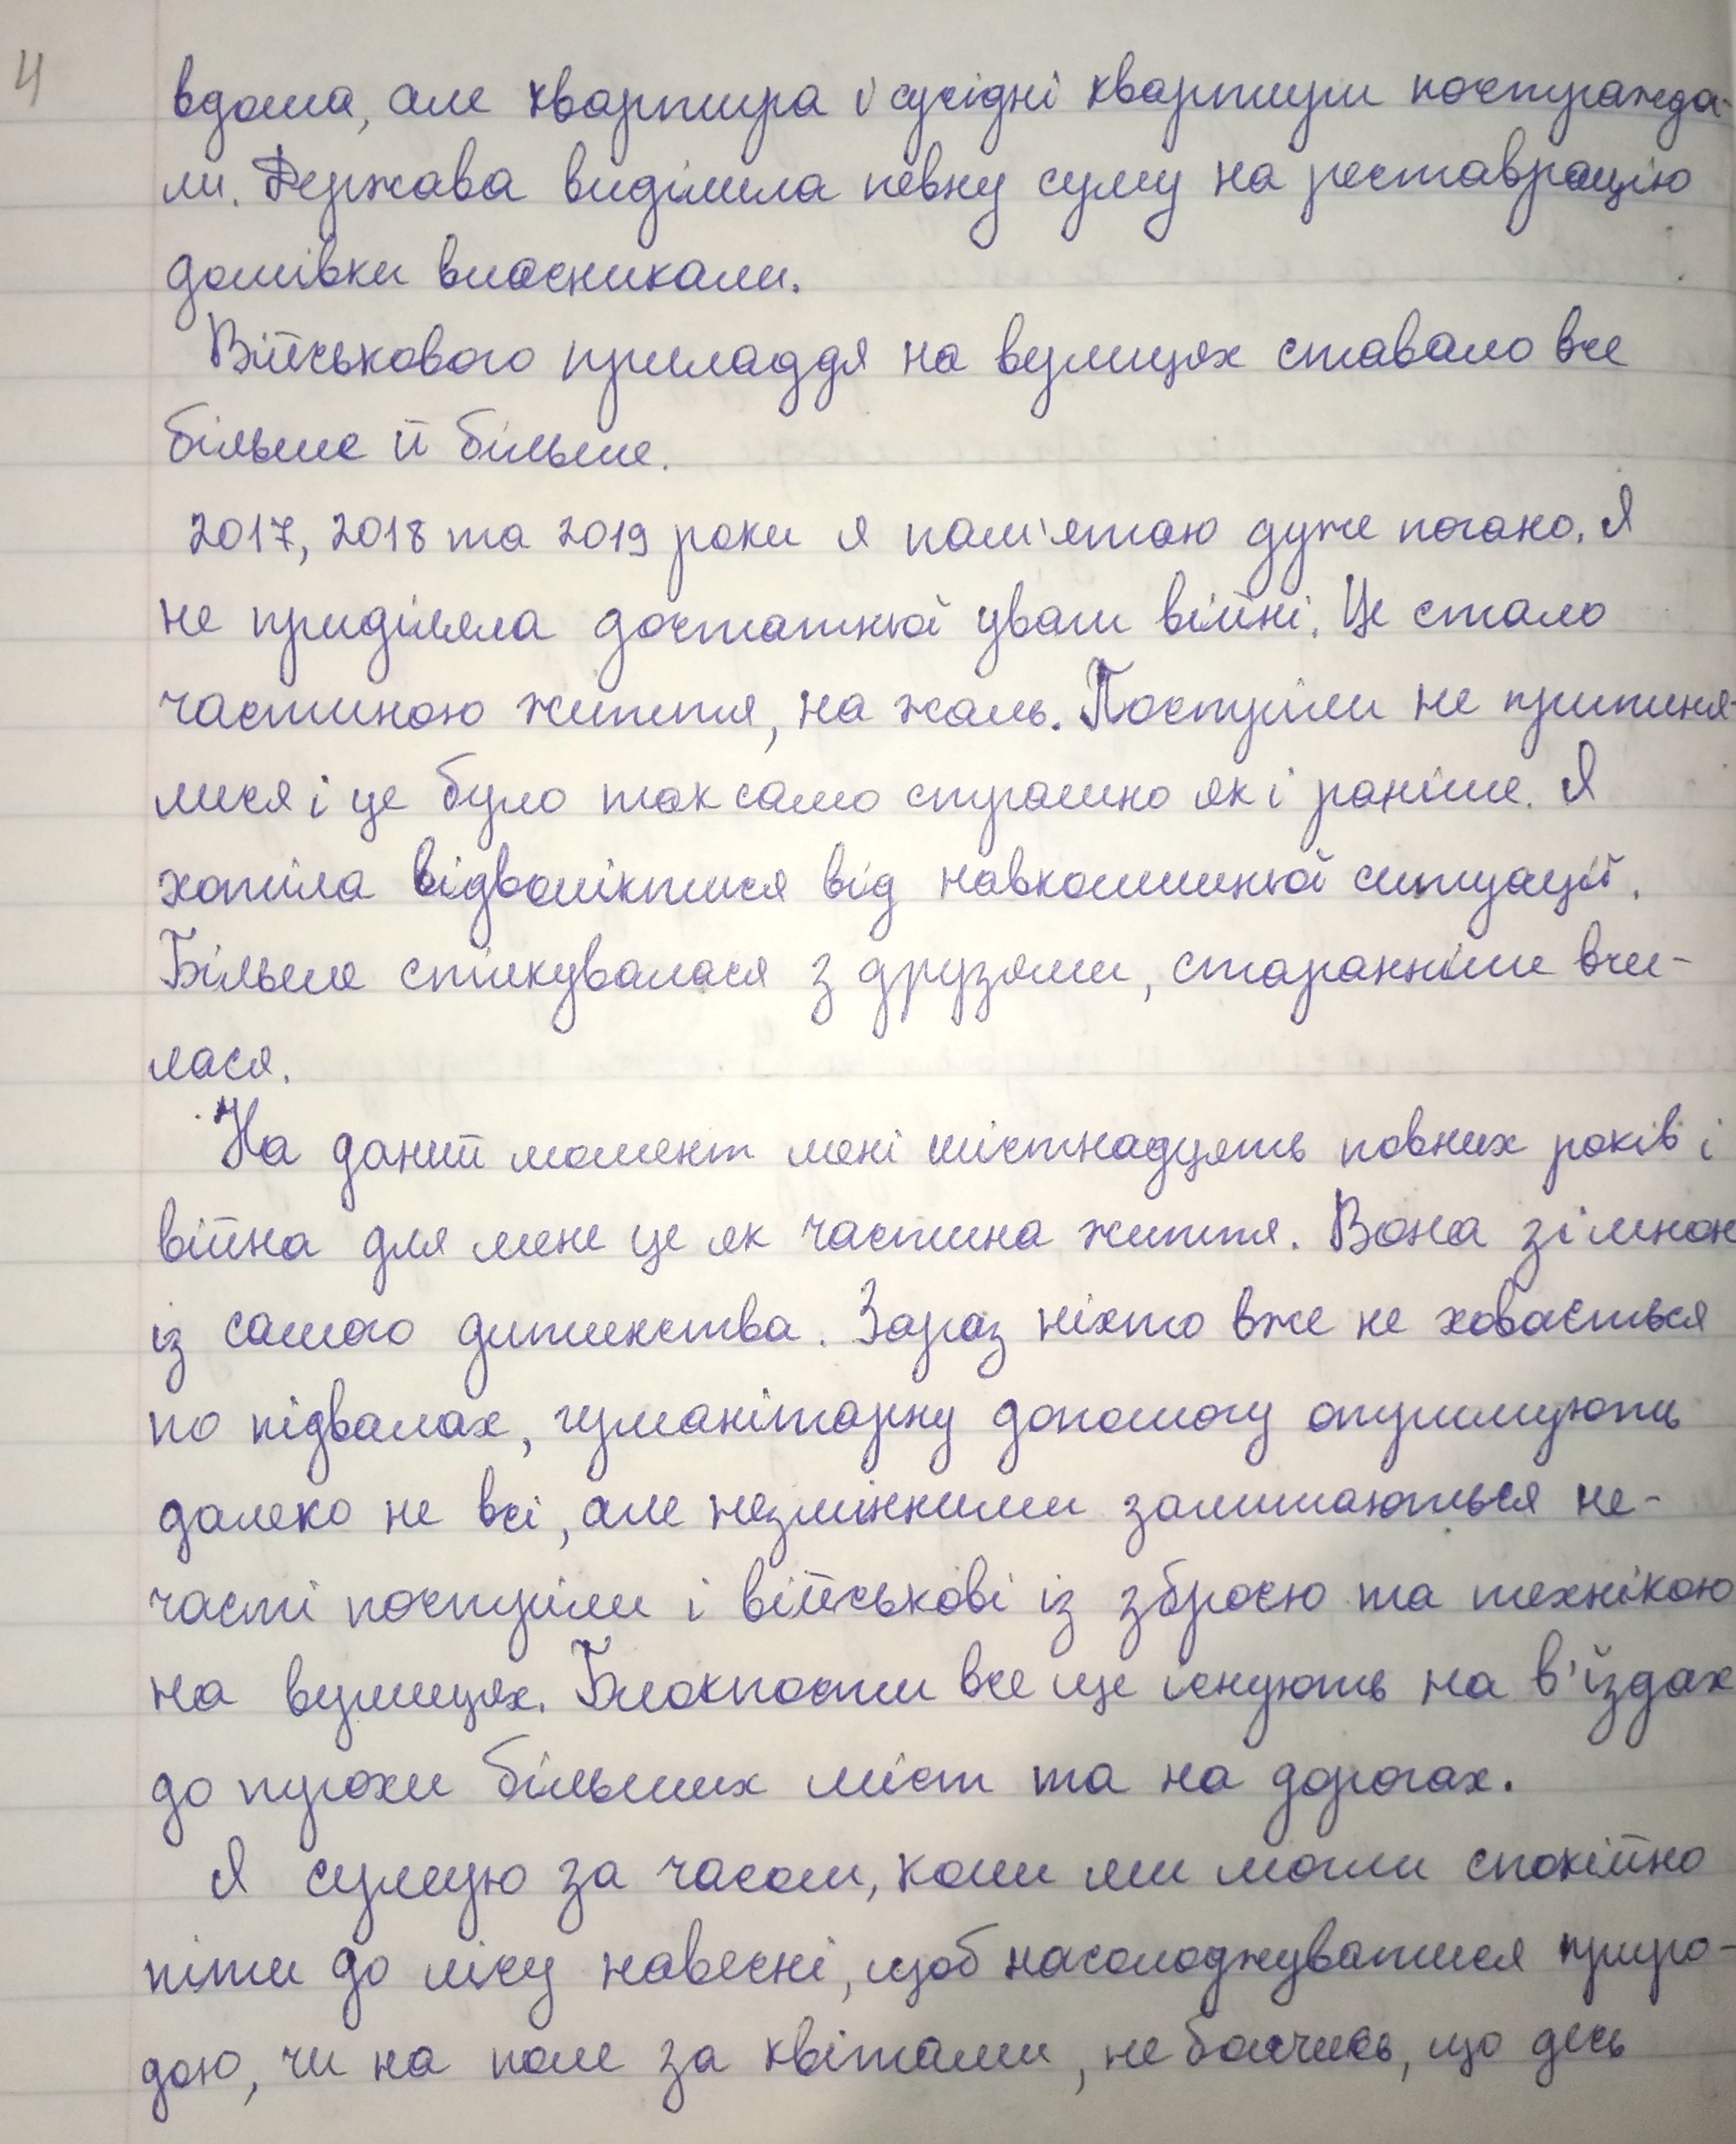 4
вдома, але квартира і сусідні квартири постражда-
ли. Держава виділила певну суму на реставрацію
домівки власниками.
Військового приладдя на вулицях ставало все
більше й більше.
2017, 2018 та 2019 роки я пам'ятаю дуже погано. Я
не приділяла достатньої уваги війні. Це стало
частиною життя, на жаль. Постріли не припиня-
лися і це було так само страшно як і раніше. Я
хотіла відволіктися від навколишньої ситуації.
Більше спілкувалася з друзями, старанніше вчи-
лася.
На даний момент мені шістнадцять повних років і
війна для мене це як частина життя. Вона зі мною
із самого дитинства. Зараз ніхто вже не ховається
по підвалах, гуманітарну допомогу отримують
далеко не всі, але незмінними залишаються не-
часті постріли і військові із зброєю та технікою
на вулицях. Блокпости все ще існують на в'їздах
до трохи більших міст та на дорогах.
Я сумую за часом, коли ми могли спокійно
піти до лісу навесні, щоб насолоджуватися приро-
дою, чи на поле за квітами, не боячись, що десь